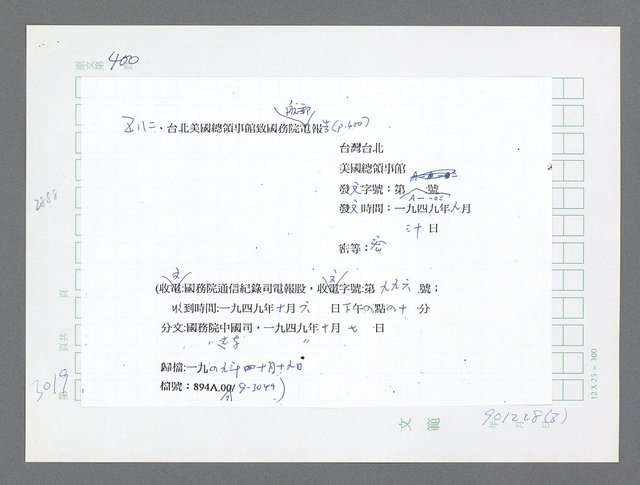 原文第 400 頁
五八二、台北美國總領事館致國務院電報 (p.400)
台灣台北
美國總領事館
發文字號：第 A-02 號
發文時間：一九四九年九月
三十日
密等：密
(收文:國務院通信紀錄司電報股，收文字號:第 九九六 號；
收到時間:一九四九年十月六 日下午四點四十分
分文:國務院中國司，一九四九年十月七 日
歸檔:一九四九年四十月十九日
檔號：894A.00/9-3049)
頁
頁共
第
3019
2888
文範
901228(3)
年 月 日
12 X 25 － 300